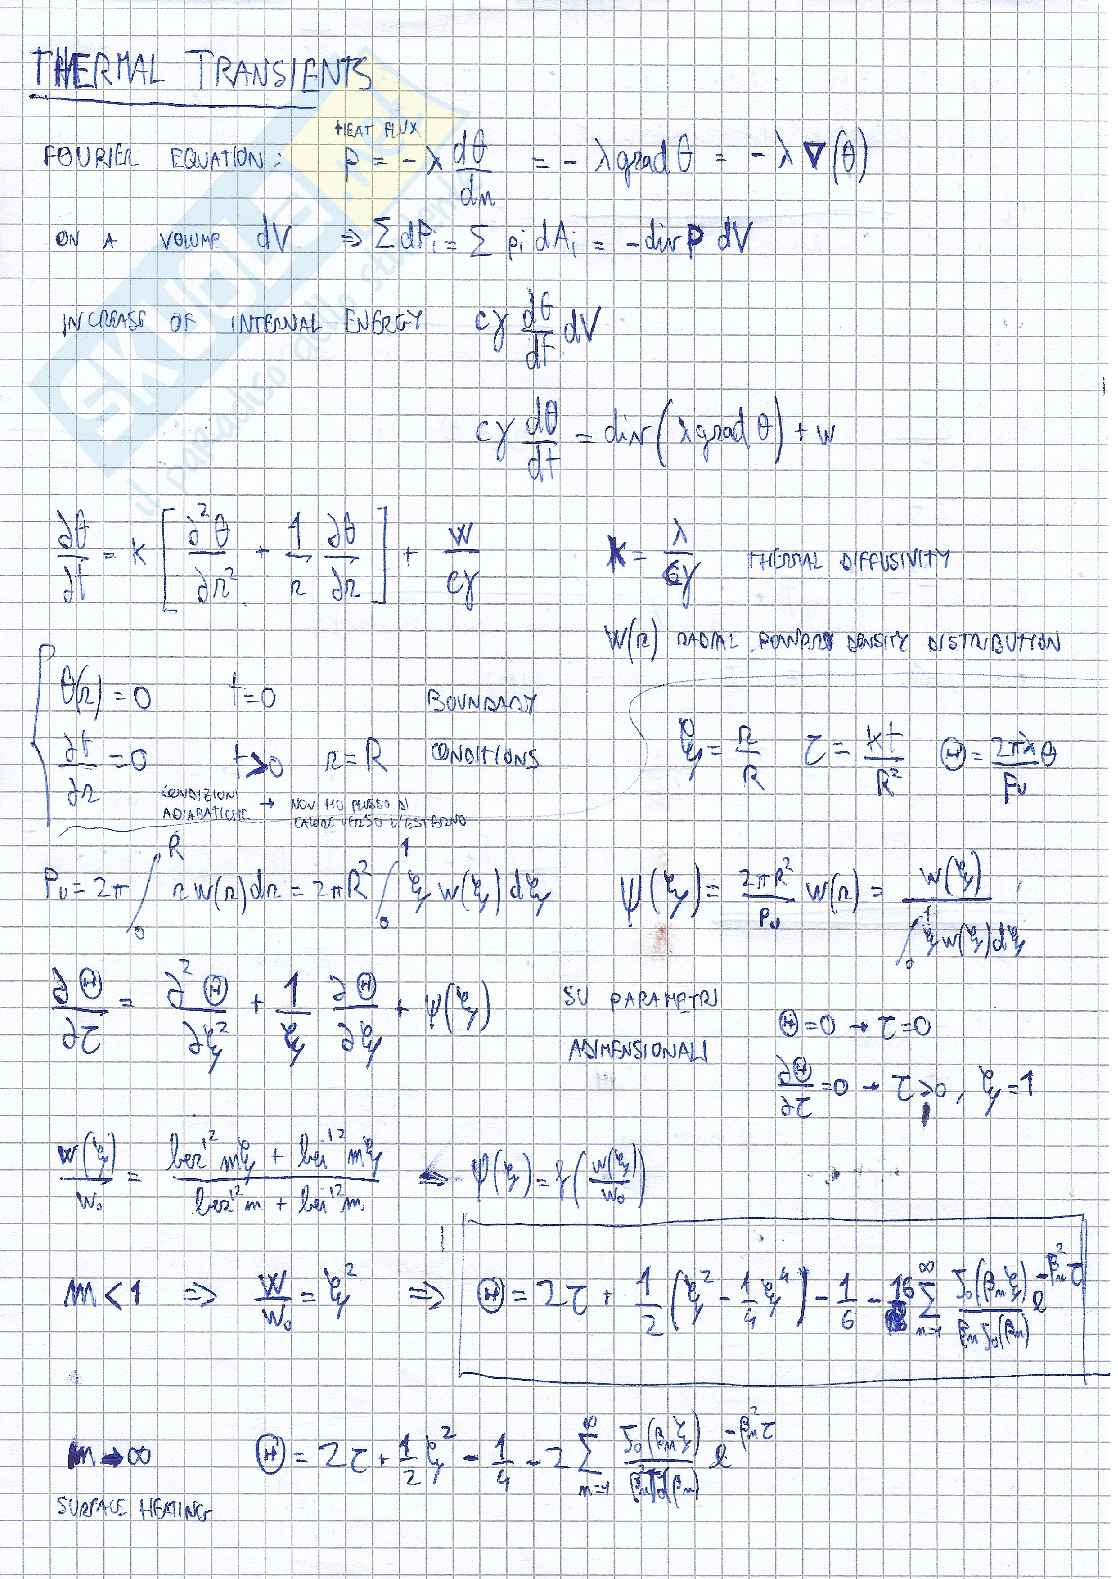 THERMAL TRANSIENTS
HEAT FLUX
FOURIER EQUATION: p = -λ dθ/dn = -λ grad θ = -λ ∇(θ)
ON A VOLUME dV ⇒ Σ dPi = Σ pi dAi = -div p dV
INCREASE OF INTERNAL ENERGY cγ dθ/dt dV
cγ dθ/dt = div(λ grad θ) + w
∂θ/∂t = k [∂²θ/∂r² + 1/r ∂θ/∂r] + w/cγ k = λ/cγ THERMAL DIFFUSIVITY
w(r) RADIAL POWER DENSITY DISTRIBUTION
θ(r) = 0 t = 0 BOUNDARY
∂t/∂r = 0 t > 0 r = R CONDITIONS
ξ = r/R τ = kt/R² Θ = 2πλ/Pu θ
CONDIZIONI ADIABATICHE → NON HO FLUSSO DI CALORE VERSO L'ESTERNO
Pu = 2π ∫₀ᴿ r w(r) dr = 2πR² ∫₀¹ ξ w(ξ) dξ ψ(ξ) = 2πR²/Pu w(r) = w(ξ)/∫₀¹ ξ w(ξ) dξ
∂Θ/∂τ = ∂²Θ/∂ξ² + 1/ξ ∂Θ/∂ξ + ψ(ξ) SU PARAMETRI
ADIMENSIONALI
Θ = 0 → τ = 0
∂Θ/∂τ = 0 → τ > 0, ξ = 1
w(ξ)/w₀ = (ber'² mξ + bei'² mξ)/(ber'² m + bei'² m) ⇐ ψ(ξ) = f(w(ξ)/w₀)
m < 1 ⇒ w/w₀ = ξ² ⇒ Θ = 2τ + 1/2 (ξ² - 1/4 ξ⁴) - 1/6 - 16 Σ(n=1, ∞) J₀(βnξ)/(βn J₀(βn)) e^(-βn²τ)
m → ∞ Θ = 2τ + 1/2 ξ² - 1/4 - 2 Σ(n=1, ∞) J₀(βnξ)/(βn² J₀(βn)) e^(-βn²τ)
SURFACE HEATING
SKUOLA.net
il paradiso dello studente